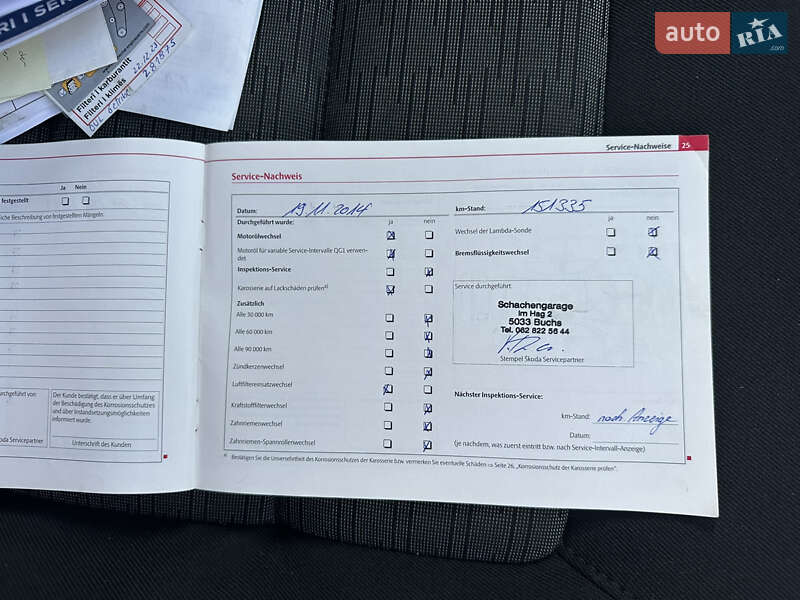 auto RIA.com
RI I SER
Filteri i karburantit
Filteri i klimës
22.12.23
281875
Service-Nachweise 25
Service-Nachweis
Datum: 19.11.2014
km-Stand: 151335
Durchgeführt wurde: ja nein
ja nein
Motorölwechsel
Wechsel der Lambda-Sonde
Motoröl für variable Service-Intervalle QG1 verwen-
det
Bremsflüssigkeitswechsel
Inspektions-Service
Karosserie auf Lackschäden prüfen a)
Service durchgeführt:
Schachengarage
Im Hag 2
5033 Buchs
Tel. 062 822 56 44
Stempel Škoda Servicepartner
Zusätzlich
Alle 30 000 km
Alle 60 000 km
Alle 90 000 km
Zündkerzenwechsel
Luftfiltereinsatzwechsel
Kraftstofffilterwechsel
Zahnriemenwechsel
Zahnriemen-Spannrollenwechsel
Nächster Inspektions-Service:
km-Stand: nach Anzeige
Datum:
(je nachdem, was zuerst eintritt bzw. nach Service-Intervall-Anzeige)
a) Bestätigen Sie die Unversehrtheit des Korrosionsschutzes der Karosserie bzw. vermerken Sie eventuelle Schäden ⇒ Seite 26, „Korrosionsschutz der Karosserie prüfen".
Ja Nein
festgestellt
liche Beschreibung von festgestellten Mängeln.
durchgeführt von:
Der Kunde bestätigt, dass er über Umfang
der Beschädigung des Korrosionsschutzes
und über Instandsetzungsmöglichkeiten
informiert wurde.
oda Servicepartner
Unterschrift des Kunden